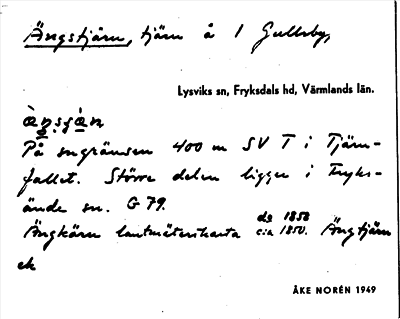 Ängstjärn, tjärn å 1 Gullsby,
Lysviks sn, Fryksdals hd, Värmlands län.
På sngränsen 400 m SV T i Tjärn-
fallet. Större delen ligger i Fryks-
ände sn. G 79.
Ängkärn lantmäterikarta ds 1858 c:a 1850. Ängtjärn
ek
ÅKE NORÉN 1949